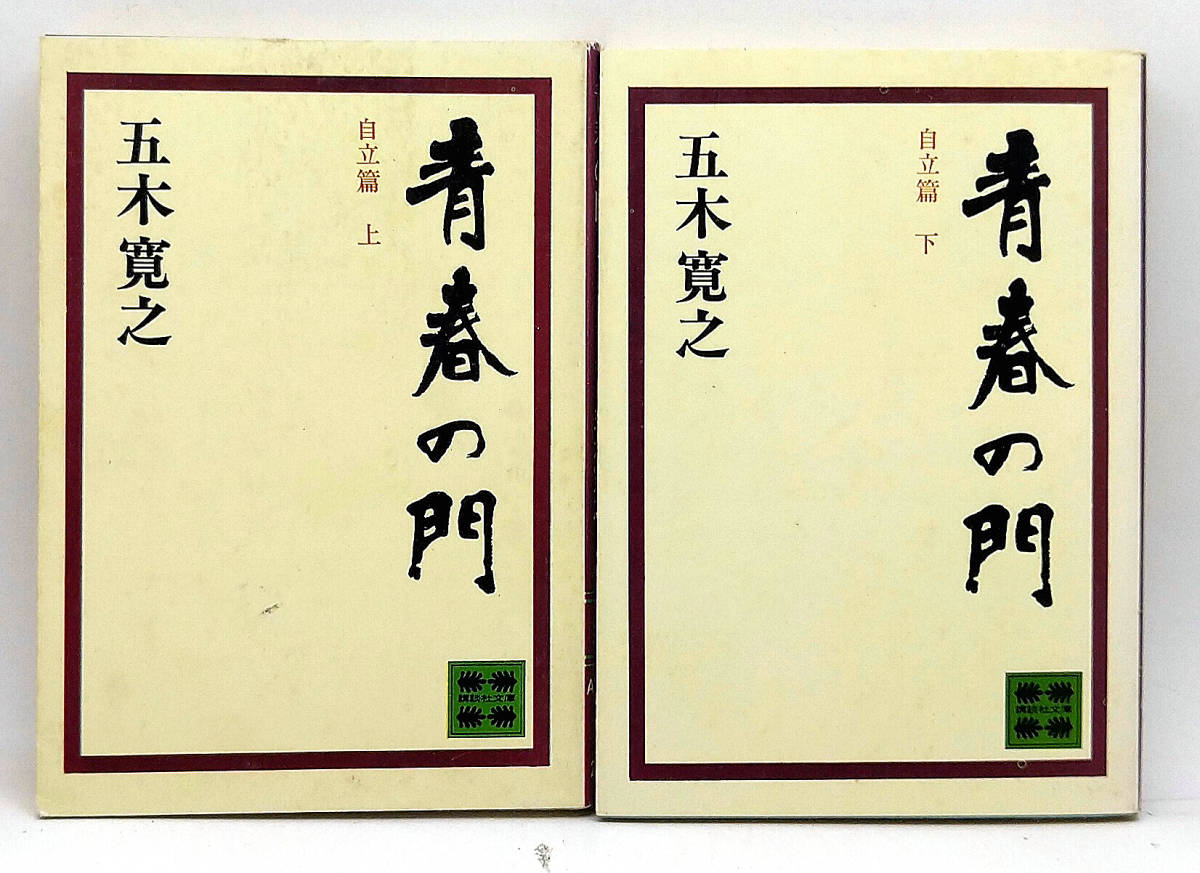 青春の門
自立篇 上
五木寛之
講談社文庫
青春の門
自立篇 下
五木寛之
講談社文庫